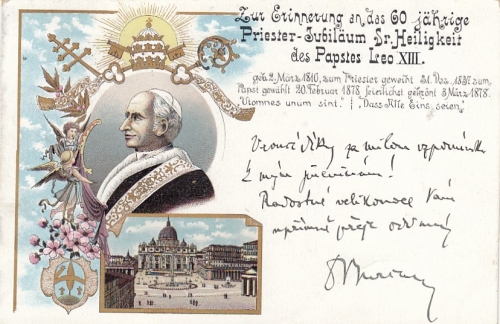 Zur Erinnerung an das 60 jährige
Priester-Jubiläum Sr. Heiligkeit
des Papstes Leo XIII.
geb. 2. März 1810, zum Priester geweiht 31. Dez. 1837 zum
Papst gewählt 20. Februar 1878, feierlichst gekrönt 3. März 1878.
"Ut omnes unum sint." / "Dass Alle Eins seien."
díky za milou vzpomínku
k mým
Radostné velikonoce Vám
upřímně přeje oddaný